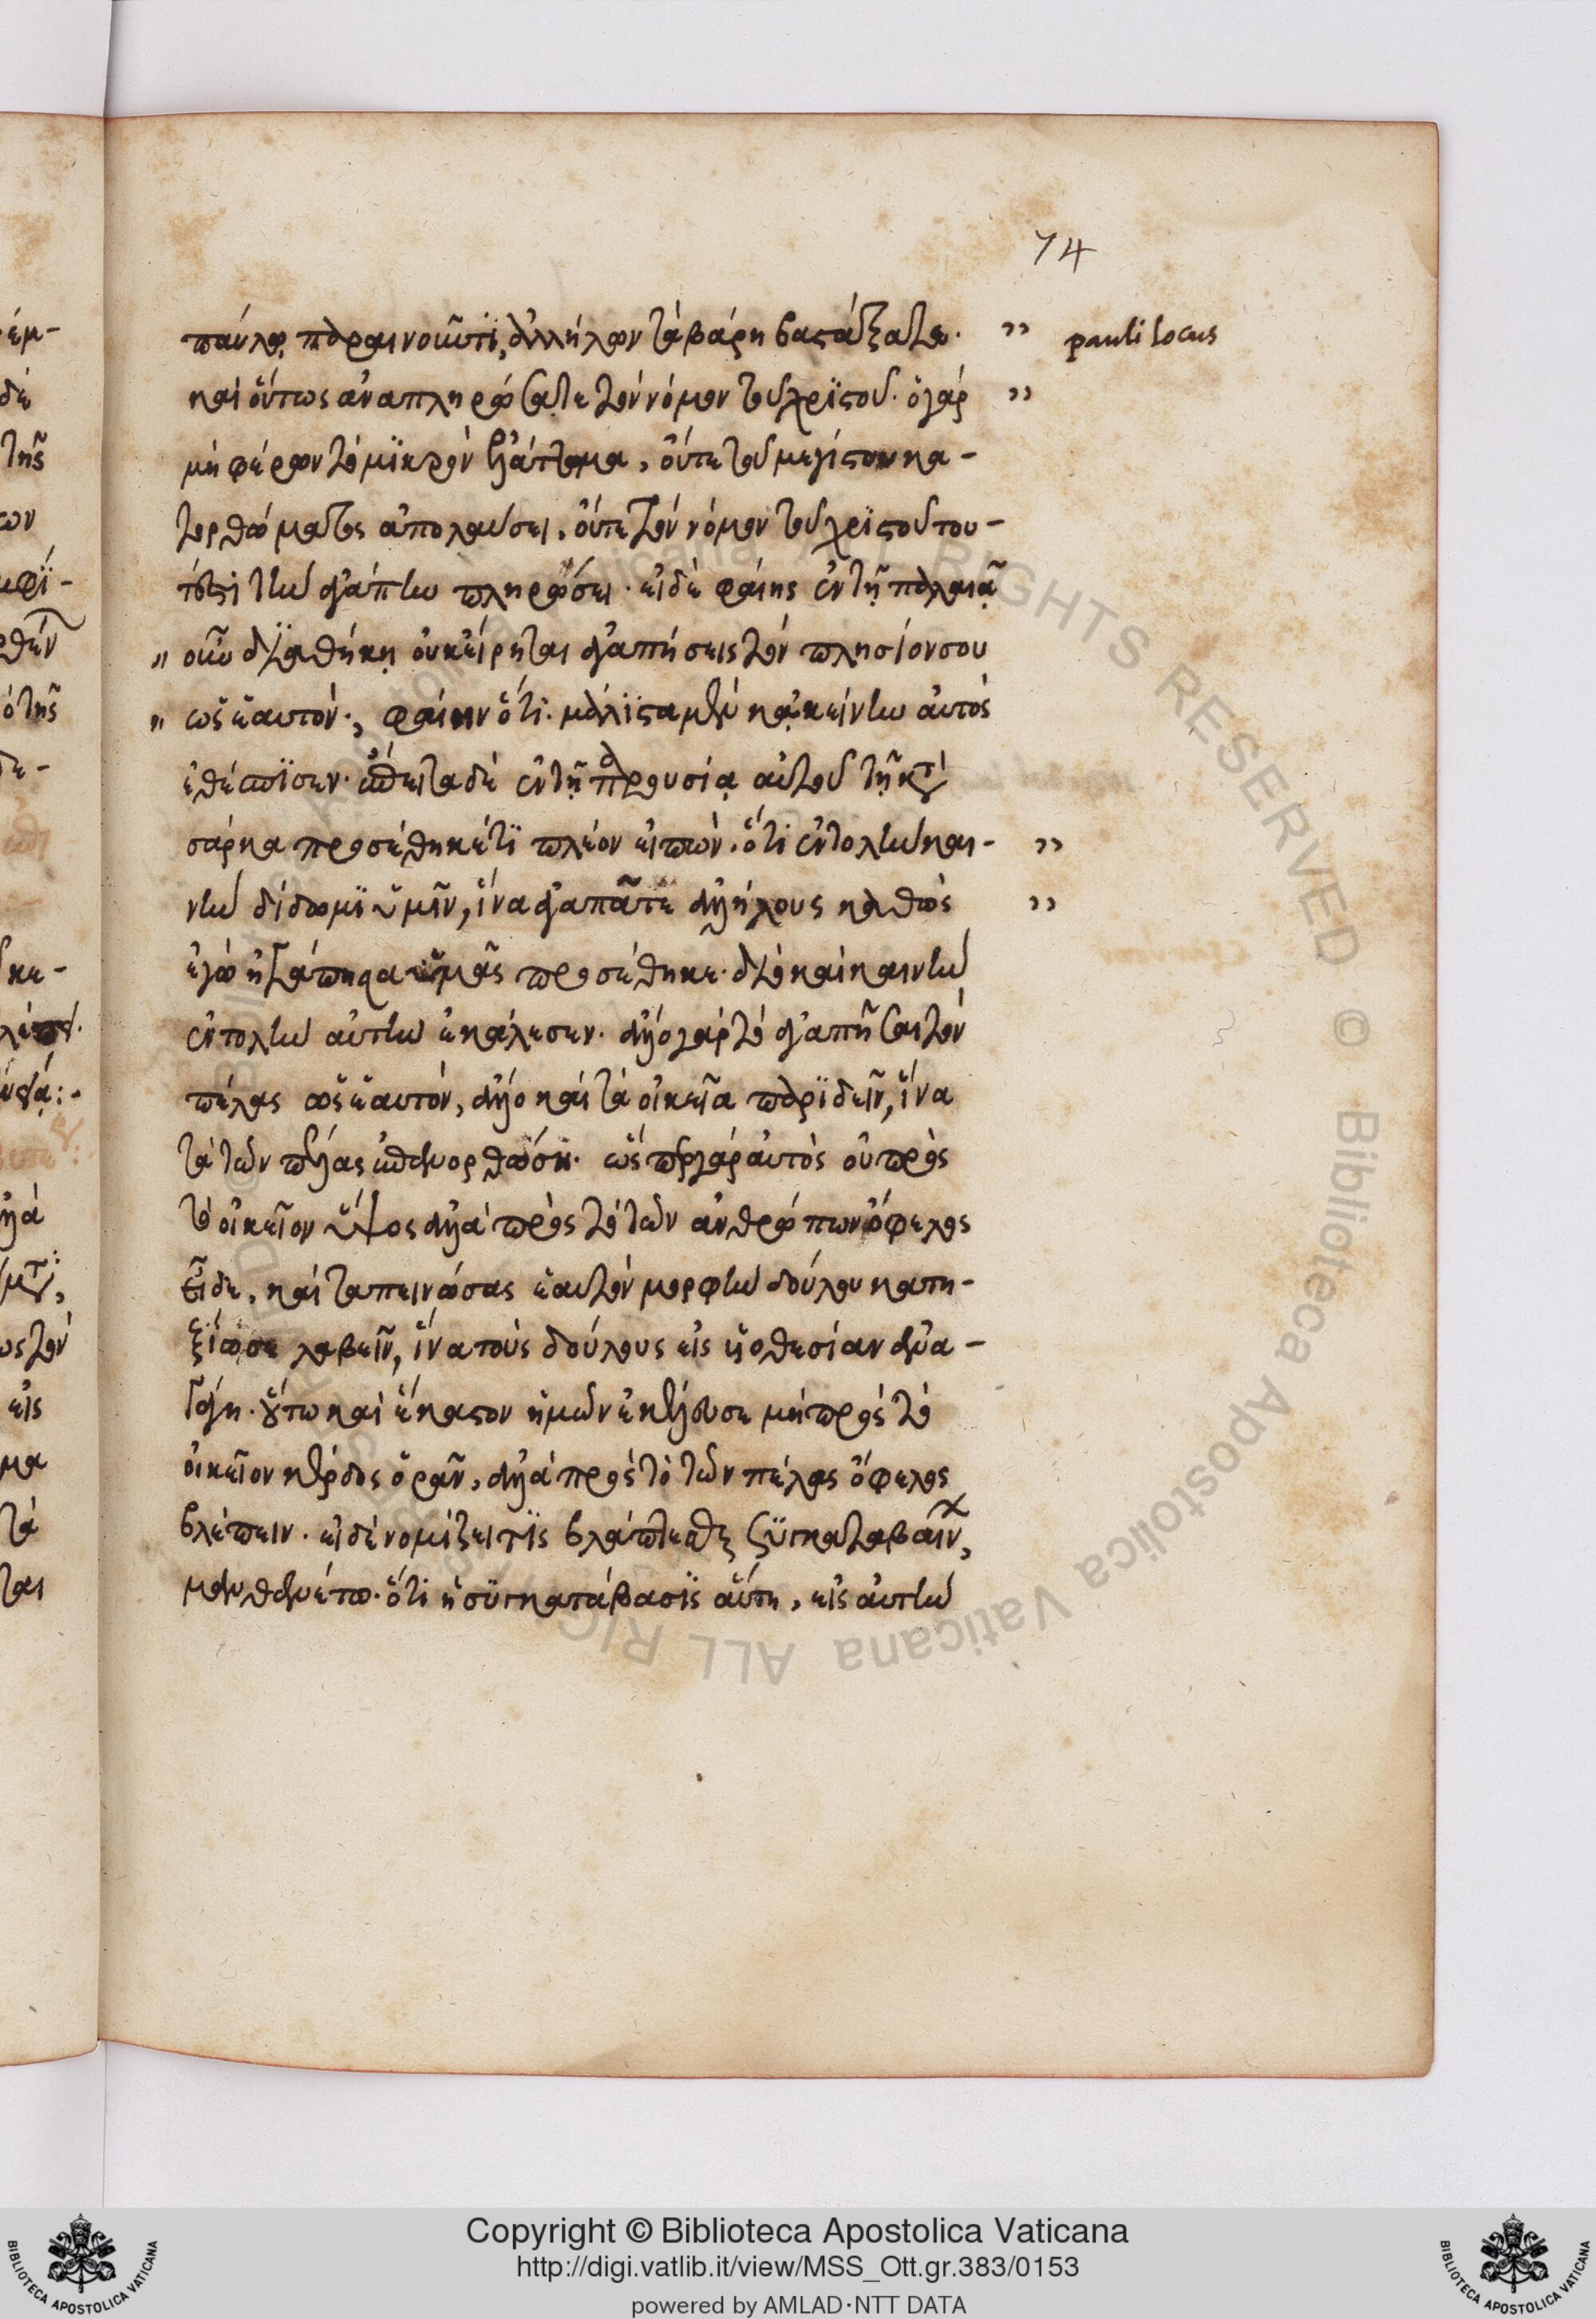 74
παύλῳ παραινοῦντι, ἀλλήλων τὰ βάρη βαστάξατε.
pauli locus
καὶ οὕτως ἀναπληρώσατε τὸν νόμον τοῦ χριστοῦ. ὁ γὰρ
μὴ φέρων τὸ μικρὸν ἐλάττωμα, οὔτε τοῦ μεγίστου κα-
τορθώματος ἀπολαύσει, οὔτε τὸν νόμον τοῦ χριστοῦ του-
τέστι τὴν ἀγάπην πληρώσει. εἰ δὲ φαίης ἐν τῇ παλαιᾷ
οὖν διαθήκῃ οὐκ εἴρηται ἀγαπήσεις τὸν πλησίον σου
ὡς ἑαυτόν, φαίην ὅτι μάλιστα μὲν κἀκείνην αὐτὸς
ἐθέσπισεν. ἔπειτα δὲ ἐν τῇ παρουσίᾳ αὐτοῦ τῇ κατὰ
σάρκα προσέθηκέ τι πλέον εἰπών. ὅτι ἐντολὴν και-
νὴν δίδωμι ὑμῖν, ἵνα ἀγαπᾶτε ἀλλήλους καθὼς
ἐγὼ ἠγάπησα ὑμᾶς προσέθηκε. διὸ καὶ καινὴν
ἐντολὴν αὐτὴν ἐκάλεσεν. ἄλλο γὰρ τὸ ἀγαπῆσαι τὸν
πέλας ὡς ἑαυτόν, ἄλλο καὶ τὰ οἰκεῖα παριδεῖν, ἵνα
τὰ τῶν πέλας ἐπανορθώσῃ. ὥσπερ γὰρ αὐτὸς οὐ πρὸς
τὸ οἰκεῖον ὕψος ἀλλὰ πρὸς τὸ τῶν ἀνθρώπων ὄφελος
εἶδε, καὶ ταπεινώσας ἑαυτὸν μορφὴν δούλου κατη-
ξίωσε λαβεῖν, ἵνα τοὺς δούλους εἰς υἱοθεσίαν ἀνα-
γάγῃ. οὕτω καὶ ἕκαστον ἡμῶν ἐκέλευσε μὴ πρὸς τὸ
οἰκεῖον κέρδος ὁρᾶν, ἀλλὰ πρὸς τὸ τῶν πέλας ὄφελος
βλέπειν. εἰ δὲ νομίζει τις βλάπτεσθαι συγκαταβαίνων,
μανθανέτω. ὅτι ἡ συγκατάβασις αὕτη, εἰς αὐτὴν
Copyright © Biblioteca Apostolica Vaticana
http://digi.vatlib.it/view/MSS_Ott.gr.383/0153
powered by AMLAD·NTT DATA